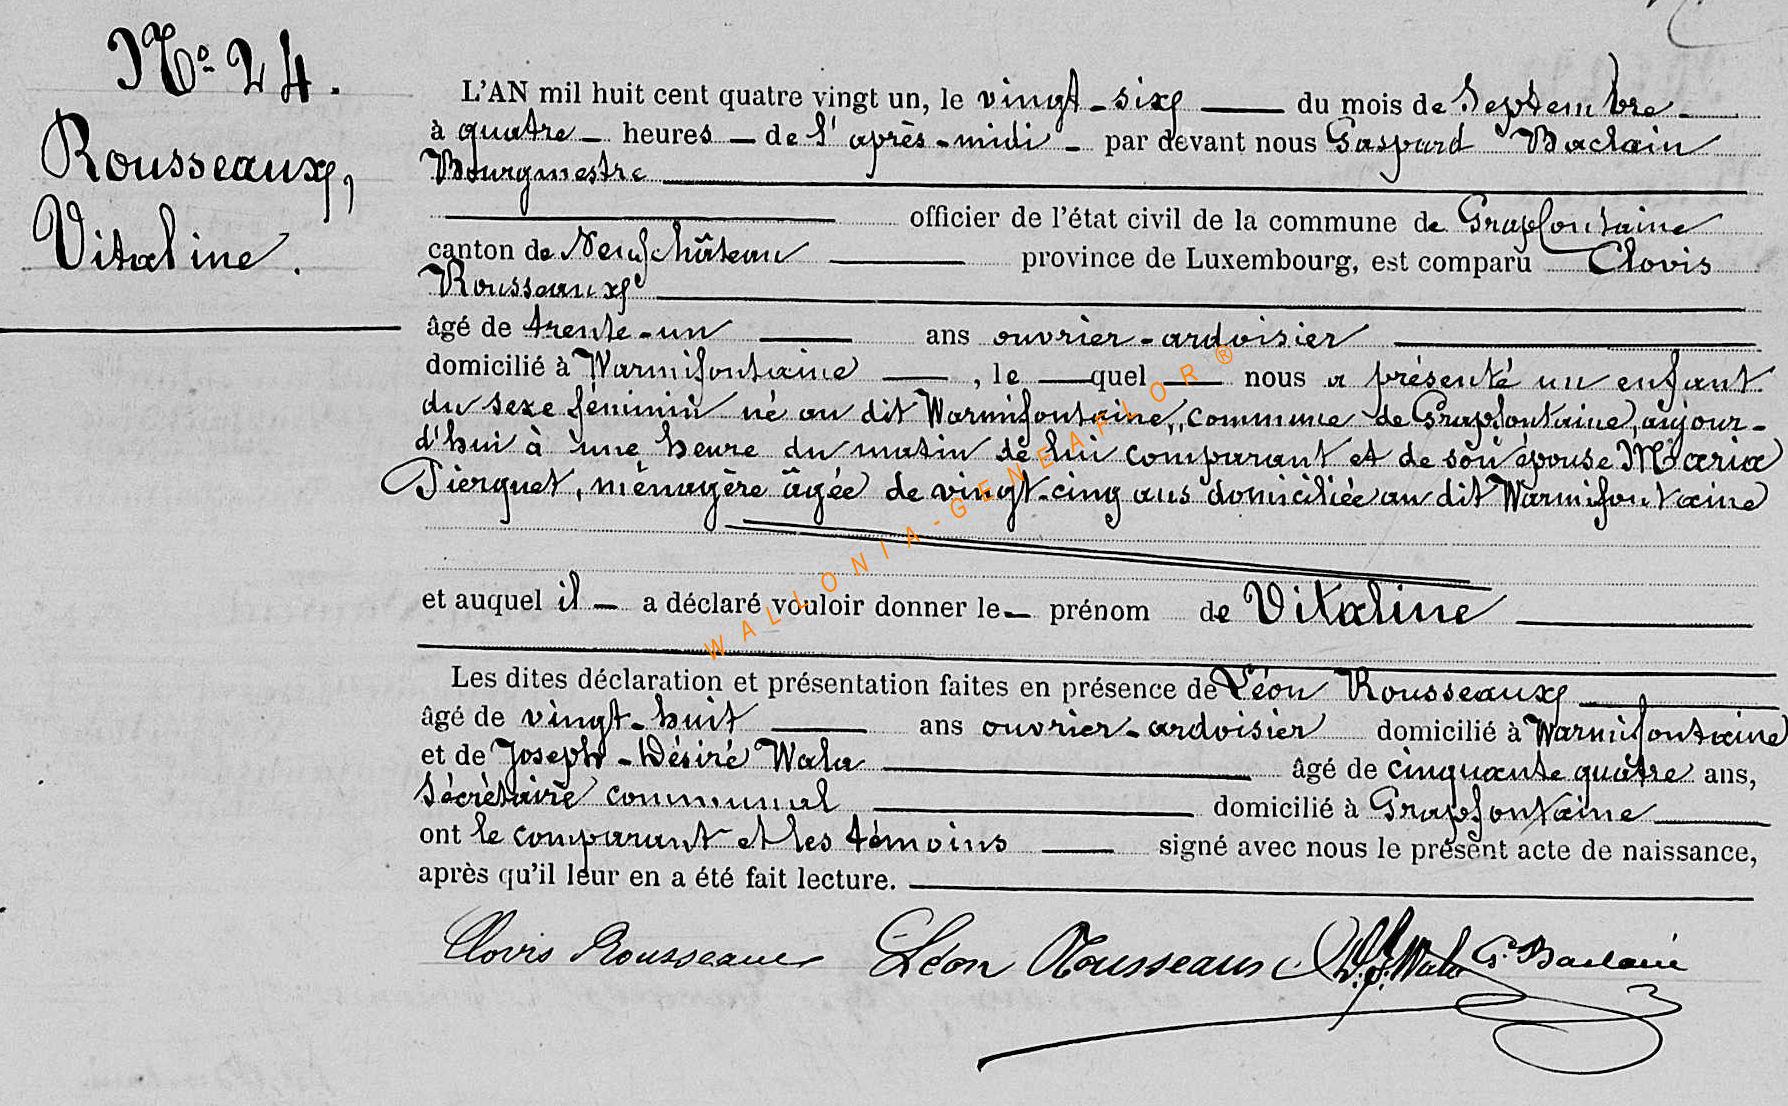 No 24.
Rousseaux,
Vitaline.
L'AN mil huit cent quatre vingt un, le vingt-six du mois de Septembre
à quatre heures de l'après-midi par devant nous Gaspard Baclain
Bourgmestre
officier de l'état civil de la commune de Grapfontaine
canton de Neufchâteau province de Luxembourg, est comparu Clovis
Rousseaux
âgé de trente-un ans ouvrier-ardoisier
domicilié à Warmifontaine, lequel nous a présenté un enfant
du sexe féminin né au dit Warmifontaine, commune de Grapfontaine, aujour-
d'hui à une heure du matin de lui comparant et de son épouse Maria
Pierquet, ménagère âgée de vingt-cinq ans domiciliée au dit Warmifontaine
et auquel il a déclaré vouloir donner le prénom de Vitaline
Les dites déclaration et présentation faites en présence de Léon Rousseaux
âgé de vingt-huit ans ouvrier-ardoisier domicilié à Warmifontaine
et de Joseph-Désiré Wala âgé de cinquante quatre ans,
Sécrétaire communal domicilié à Grapfontaine
ont le comparant et les témoins signé avec nous le présent acte de naissance,
après qu'il leur en a été fait lecture.
Clovis Rousseaux Léon Rousseaux D. J. Wala G. Baclain
WALLONIA-GENEAFLOR®